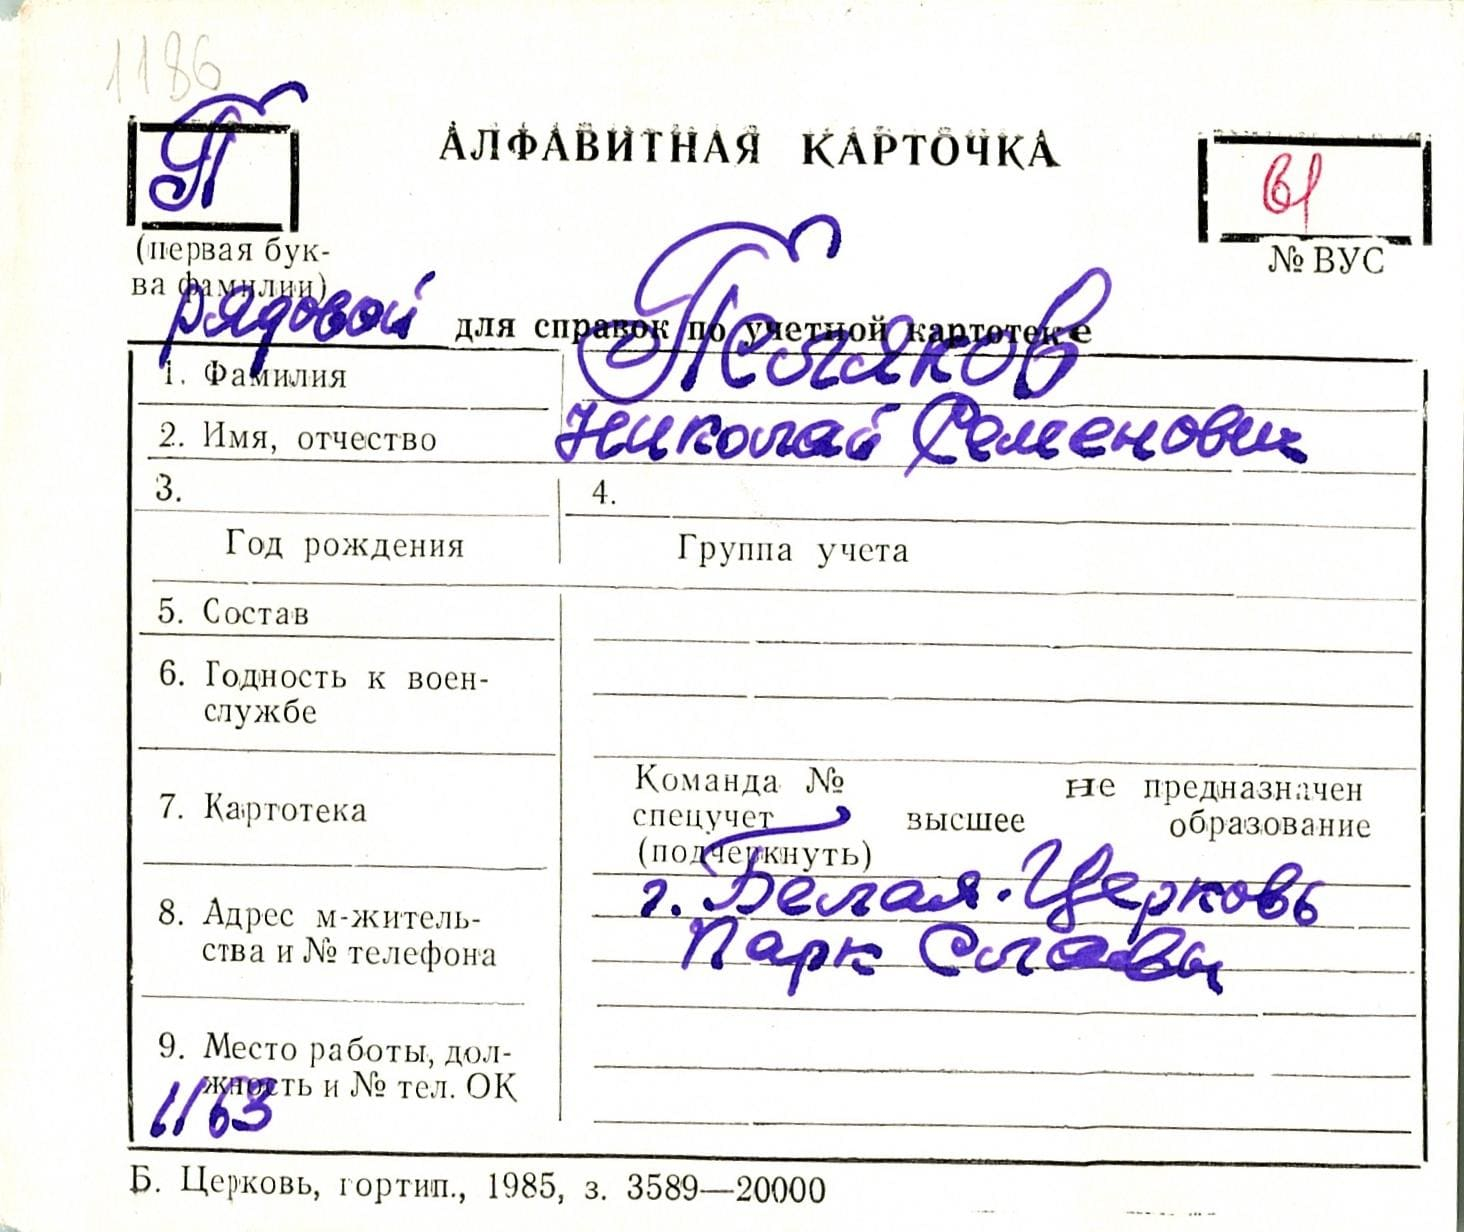 1186
П
АЛФАВИТНАЯ КАРТОЧКА
(первая бук-
ва фамилии)
№ ВУС
рядовой
для справок по учетной картотеке
1. Фамилия
Поляков
2. Имя, отчество
Николай Семенович
3.
4.
Год рождения
Группа учета
5. Состав
6. Годность к воен-
службе
7. Картотека
Команда № не предназначен
спецучет высшее образование
(подчеркнуть)
8. Адрес м-житель-
ства и № телефона
г. Белая-Церковь
Парк Славы
9. Место работы, дол-
жность и № тел. ОК
1163
Б. Церковь, гортип., 1985, з. 3589—20000